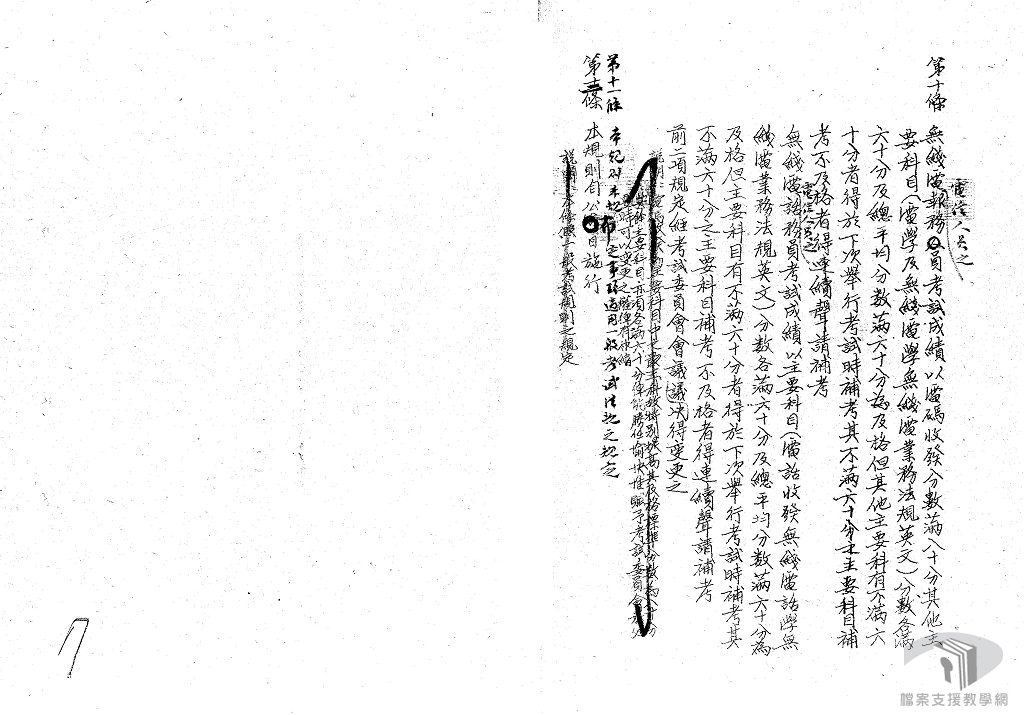 第十條
無綫電報務員考試成績以電碼收發分數滿八十分其他主
電信人員之
要科目(電學及無綫電學無綫電業務法規英文)分數各滿
六十分及總平均分數滿六十分為及格但其他主要科有不滿六
十分者得於下次舉行考試時補考其不滿六十分之主要科目補
考不及格者得連續聲請補考
電信人員之
無綫電話務員考試成績以主要科目(電話收發無綫電話學無
綫電業務法規英文)分數各滿六十分及總平均分數滿六十分為
及格但主要科目有不滿六十分者得於下次舉行考試時補考其
不滿六十分之主要科目補考不及格者得連續聲請補考
前二項規定經考試委員會會議議決得變更之
第十一條 本規則未規定事項適用一般考試法規之規定
第十二條 本規則自公布日施行
說明 本條係一般考試規則之規定
檔案支援教學網